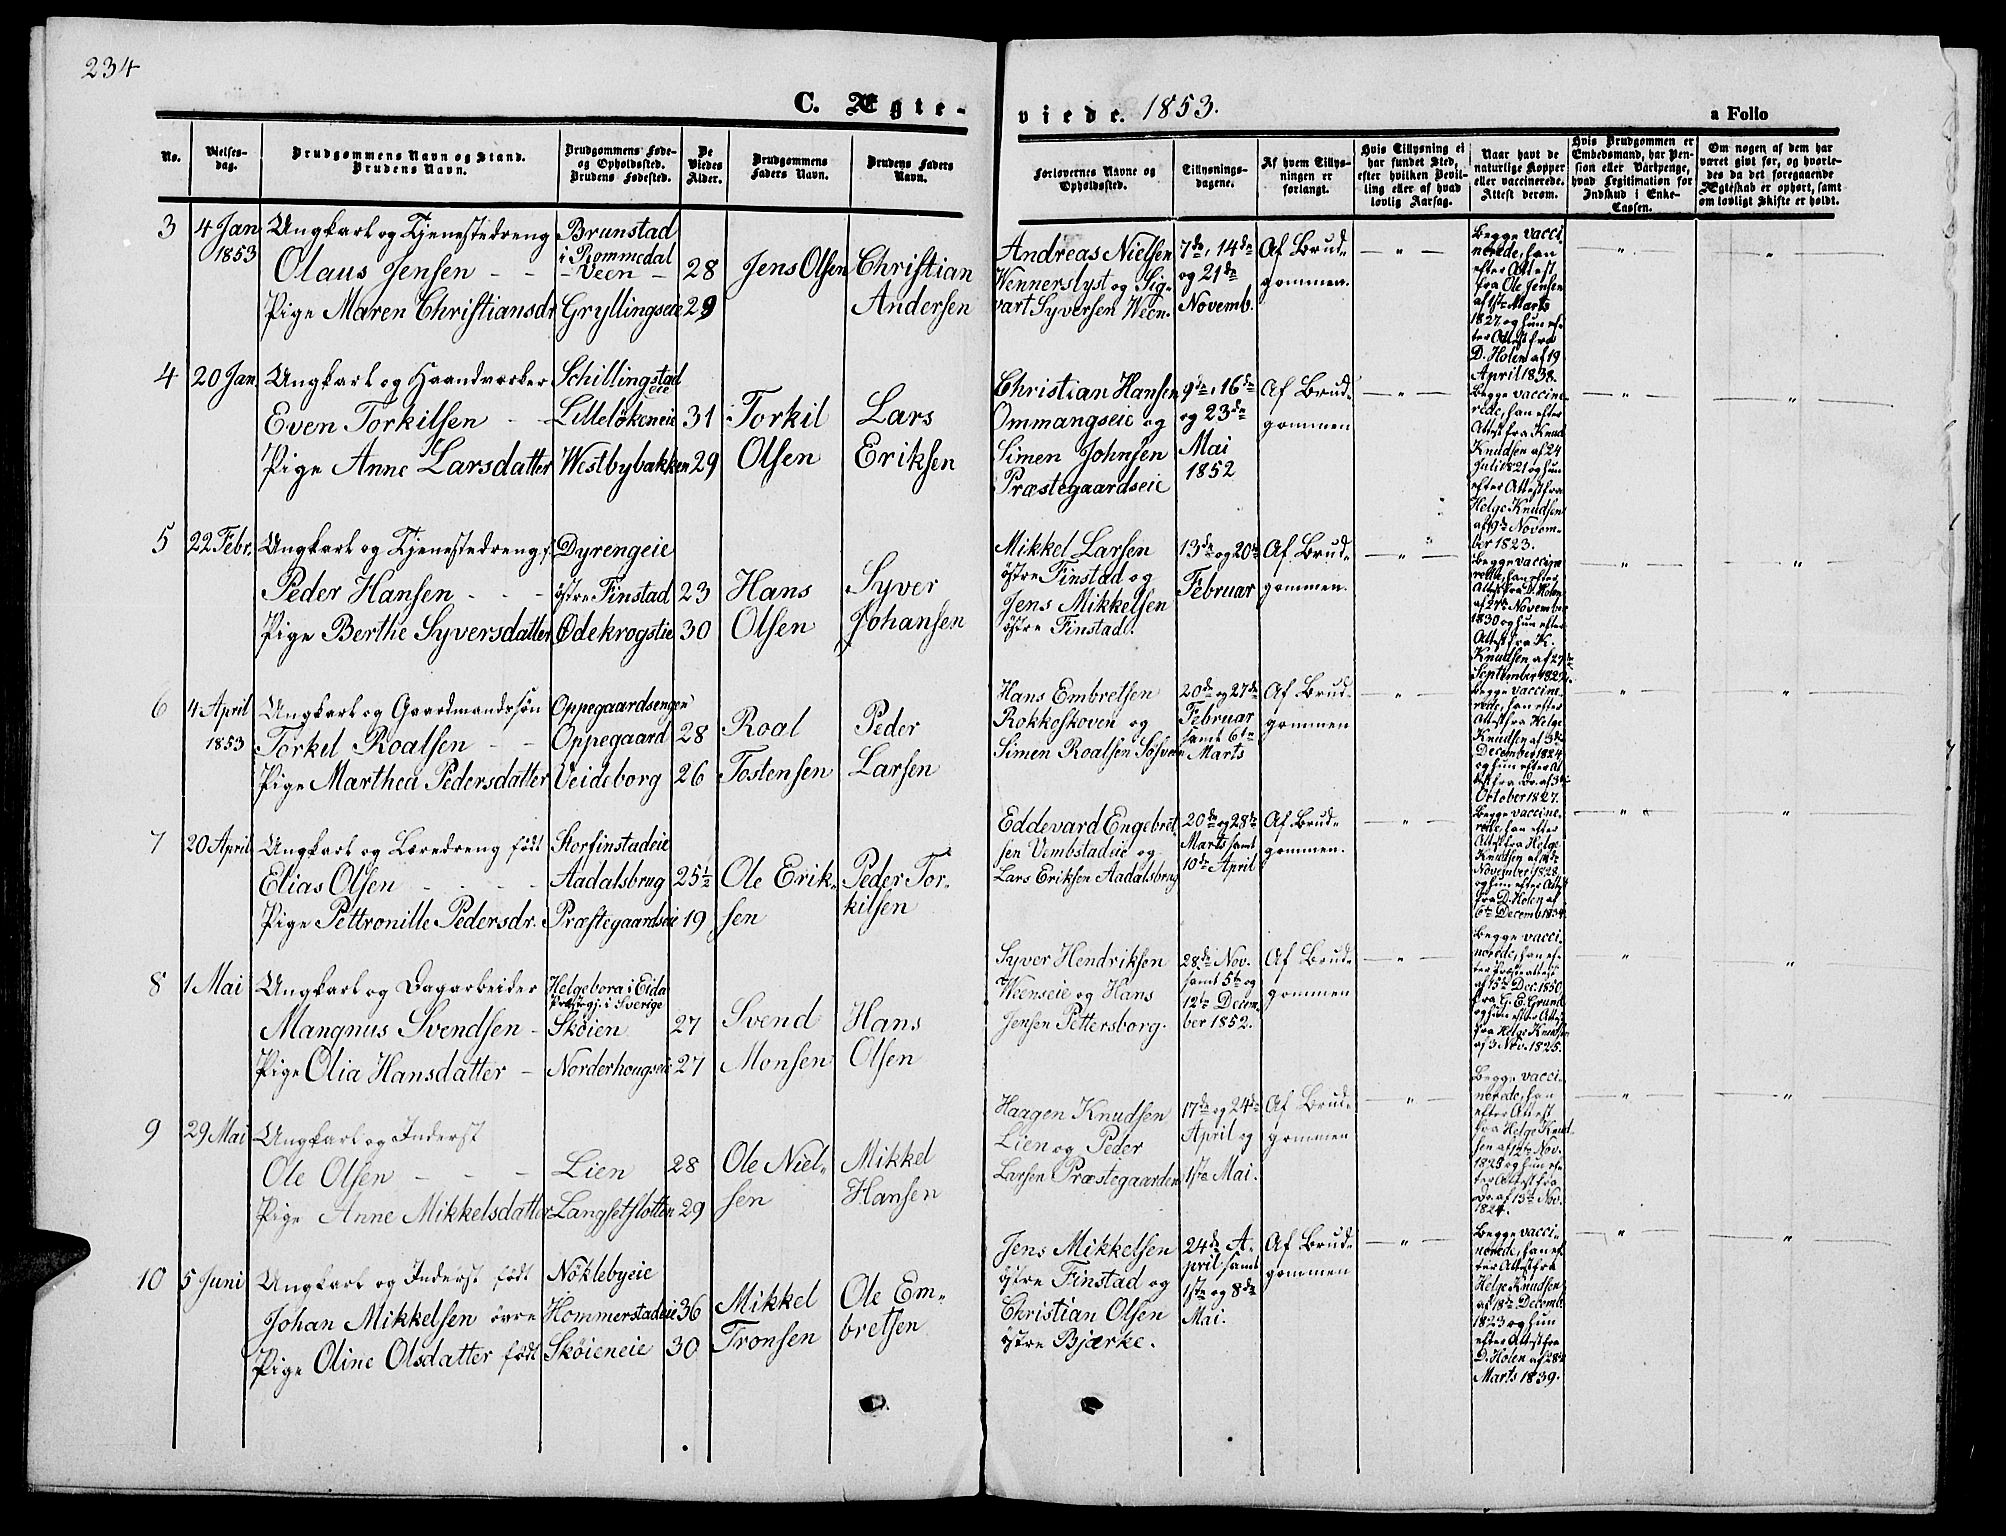 234
C. Ægte-
viede. 1853.
a Folio
No.
Vielses-
dag.
Brudgommens Navn og Stand.
Brudens Navn.
Brudgommens Føde-
og Opholdssted.
Brudens Fødested.
De
Viedes
Alder.
Brudgommens
Faders Navn.
Brudens Faders
Navn.
Forlovernes Navne og
Opholdssted.
Tillysnings-
dagene.
Af hvem Tillys-
ningen er
forlangt.
Hvis Tillysning ei
har fundet Sted,
efter hvilken Bevil-
ling eller af hvad
lovlig Aarsag.
Naar havt de
naturlige Kopper
eller vaccinerede.
Attest derom.
Hvis Brudgommen er
Embedsmand, har Pen-
sion eller Vartpenge,
hvad Legitimation for
Indskud i Enke-
Cassen.
Om nogen af dem har
været givt før, og hvorle-
des da det foregaaende
Ægteskab er ophørt, samt
om lovligt Skifte er holdt.
3
4 Jan
1853
Ungkarl og Tjenestedreng
Olaus Jensen - -
Pige Maren Christiansdr
Brunstad
i Rommedal
- Veen -
Gryllingseie
28
29
Jens Olsen
Christian
Andersen
Andreas Nielsen
Wennerslyst og Sig-
vart Syversen Ween.
7de, 14de
og 21de
Novemb.
Af Brud-
gommen.
— " —
Begge vacci-
nerede, han
efter Attest
fra Ole Jensen
af 1ste Marts
1827 og hun ef-
ter Attest fra
D. Holen af 19
April 1838.
— " —
— " —
4
20 Jan.
Ungkarl og Haandværker
Even Torkilsen - -
Pige Anne Larsdatter
Schillingstad
eie
Lilleløkeneie
Westbybakken
31
29
Torkil
Olsen
Lars
Eriksen
Christian Hansen
Ommangseie og
Simen Johnsen
Præstegaardseie
9de, 16de
og 23de
Mai
1852
Af Brud-
gommen
— " —
Begge vaccine-
rede, han efter
Attest fra Knud
Knudsen af 24
Juli 1821 og hun
efter Attest fra
Helge Knudsen
af 9de Novem-
ber 1823.
— " —
— " —
5
22 Febr.
Ungkarl og Tjenestedreng f.
Peder Hansen - - -
Pige Berthe Syversdatter
Dyrengeie
østre Finstad
Ødekrogstie
23
30
Hans
Olsen
Syver
Johansen
Mikkel Larsen
østre Finstad og
Jens Mikkelsen
østre Finstad.
13de og 20de
Februar
Af Brud-
gommen.
— " —
Begge vaccine-
rede, han efter
Attest fra D. Holen
af 27de November
1830 og hun efter
Attest fra K.
Knudsen af 27de
September 182
— " —
— " —
6
4 April
1853
Ungkarl og Gaardmandssøn
Torkel Roalsen - -
Pige Marthea Pedersdatter
Oppegaardsengen
Oppegaard
Veideborg
28
26
Roal
Tostensen
Peder
Larsen
Hans Embretsen
Rokkeskoven og
Simen Roalsen
20de og 27de
Februar
samt 6te
Marts
Af Brud-
gommen
— " —
Begge vaccine-
rede, han efter
Attest fra Helge
Knudsen af 3die
December 1824
og hun efter At-
test fra Do. af 3die
October 1827.
— " —
— " —
7
20 April
Ungkarl og Læredreng født
Elias Olsen - - -
Pige Pettronille Pedersdr.
Storfinstadeie
Aadalsbrug
Præstegaardseie
25½
19
Ole Erik-
sen
Peder Tor-
kilsen
Eddevard Engebret-
sen Vembstadeie og
Lars Eriksen Aadalsbrug
20de og 28de
Marts samt
10de April
Af Brud-
gommen.
— " —
Begge vaccine-
rede, han efter
Attest fra Helge
Knudsen af
November 1828
og hun efter Attest
fra D. Holen af
6te Decemb 1834.
— " —
— " —
8
1 Mai
Ungkarl og Dagarbeider
Mangnus Svendsen -
Pige Olia Hansdatter -
Helgebora i Eida
Præstegj. i Sverige
Skøien
Norderhougseie
27
27
Svend
Monsen
Hans
Olsen
Syver Hendriksen
Weenseie og Hans
Jensen Pettersborg.
28de Nov.
samt 5te og
12te Decem-
ber 1852.
Af Brud-
gommen
— " —
Begge vacci-
nerede, han ef-
ter Præsteattest
af 15de Dec. 1850
fra G. E. Grund
og hun efter Attest
fra Helge Knudsen
af 3 Nov. 1825.
— " —
"
9
29 Mai
Ungkarl og Inderst
Ole Olsen - -
Pige Anne Mikkelsdatter
Lien
Langsetsløtten
28
29
Ole Niel-
sen
Mikkel
Hansen
Haagen Knudsen
Lien og Peder
Larsen Præstegaarden
17de og 24de
April og
1ste Mai.
Af Brud-
gommen
— " —
Begge vacci-
nerede, han
efter Attest
fra Helge Knud-
sen af 12te Nov.
1828 og hun ef-
ter Attest fra
Do. af 13de Nov.
1824.
— " —
— " —
10
5 Juni
Ungkarl og Inderst født
Johan Mikkelsen øvre
Pige Oline Olsdatter født
Nøklebyeie
Hommerstadeie
Skøieneie
36
30
Mikkel
Tronsen
Ole Em-
bretsen
Jens Mikkelsen
østre Finstad og
Christian Olsen
østre Bjærke.
24de A-
pril samt
1ste og 8de
Mai.
Af Brud-
gommen
— " —
Begge vacci-
nerede, han ef-
ter Attest fra
Helge Knudsen
af 18de Decemb
1823 og hun
efter Attest fra
D. Holen af 28de
Marts 1839.
— " —
— " —